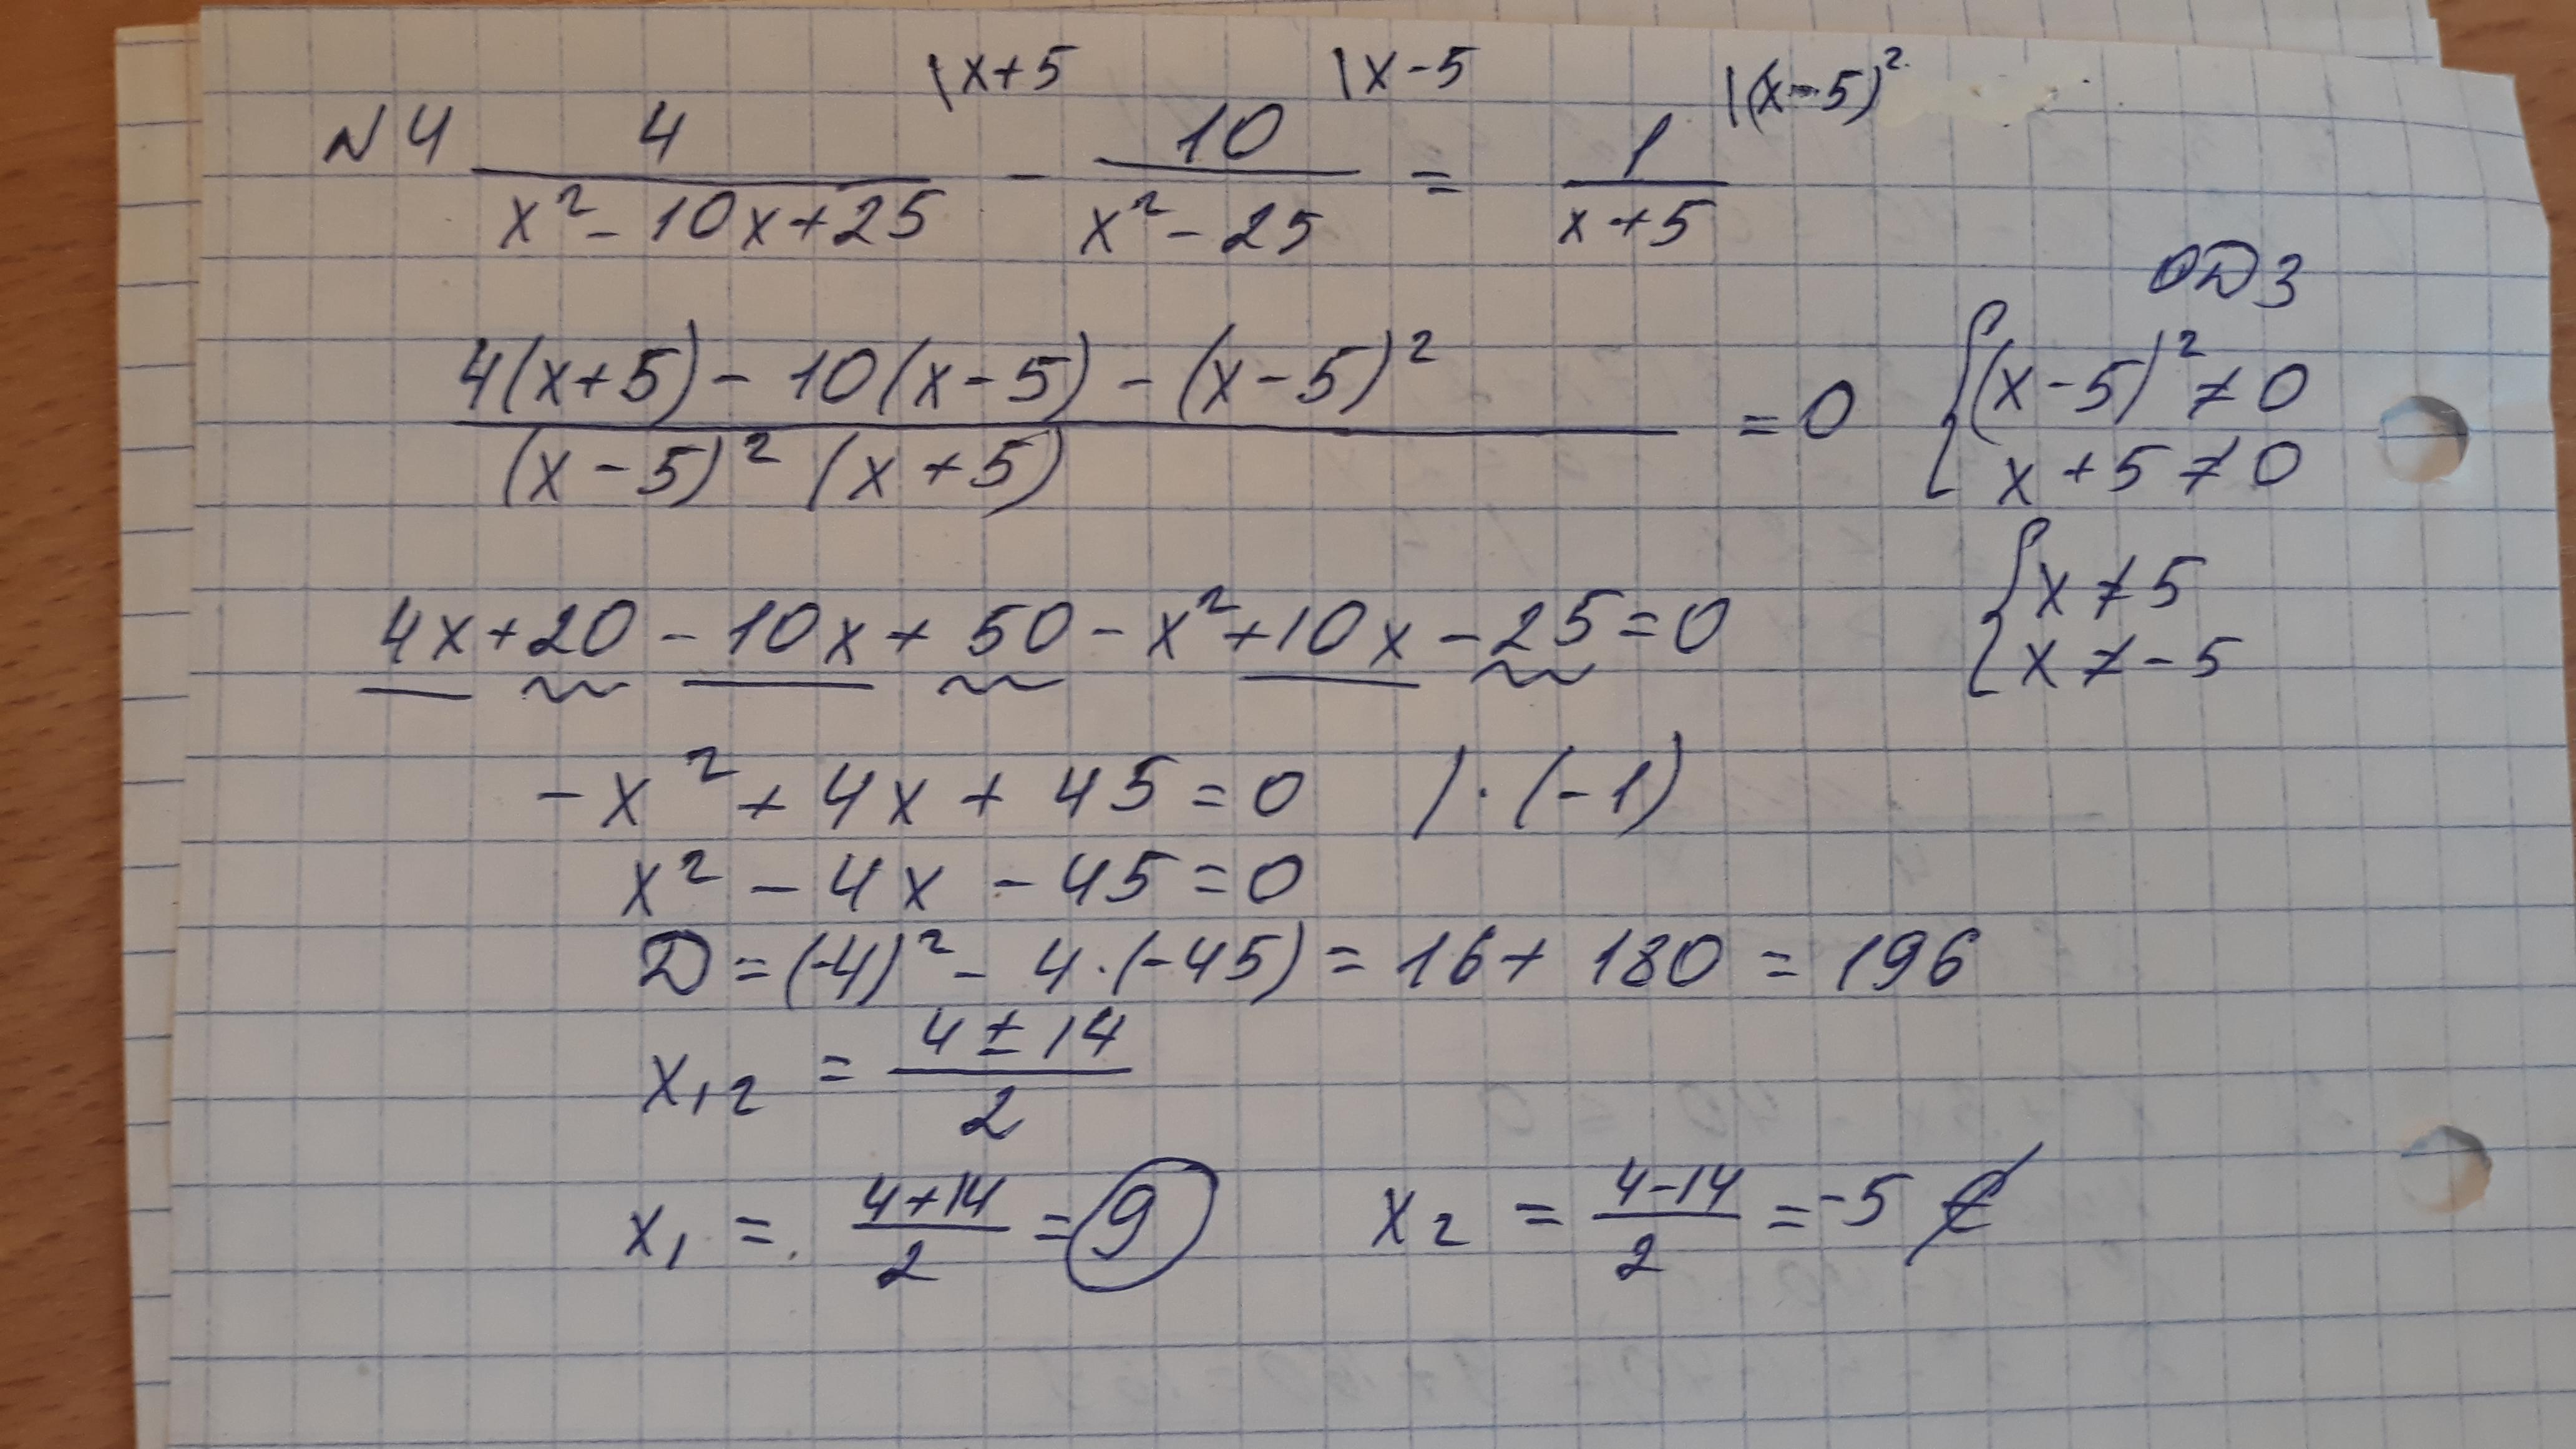 \x+5 \x-5 \(x-5)²
N4 4/(x²-10x+25) - 10/(x²-25) = 1/(x+5)
ОДЗ
(4(x+5)-10(x-5)-(x-5)²)/((x-5)²(x+5)) = 0
{(x-5)²≠0
x+5≠0
4x+20-10x+50-x²+10x-25=0
{x≠5
x≠-5
-x²+4x+45=0 |·(-1)
x²-4x-45=0
D=(-4)²-4·(-45)=16+180=196
x₁₂ = (4±14)/2
x₁ = (4+14)/2 = 9 x₂ = (4-14)/2 = -5 ∉